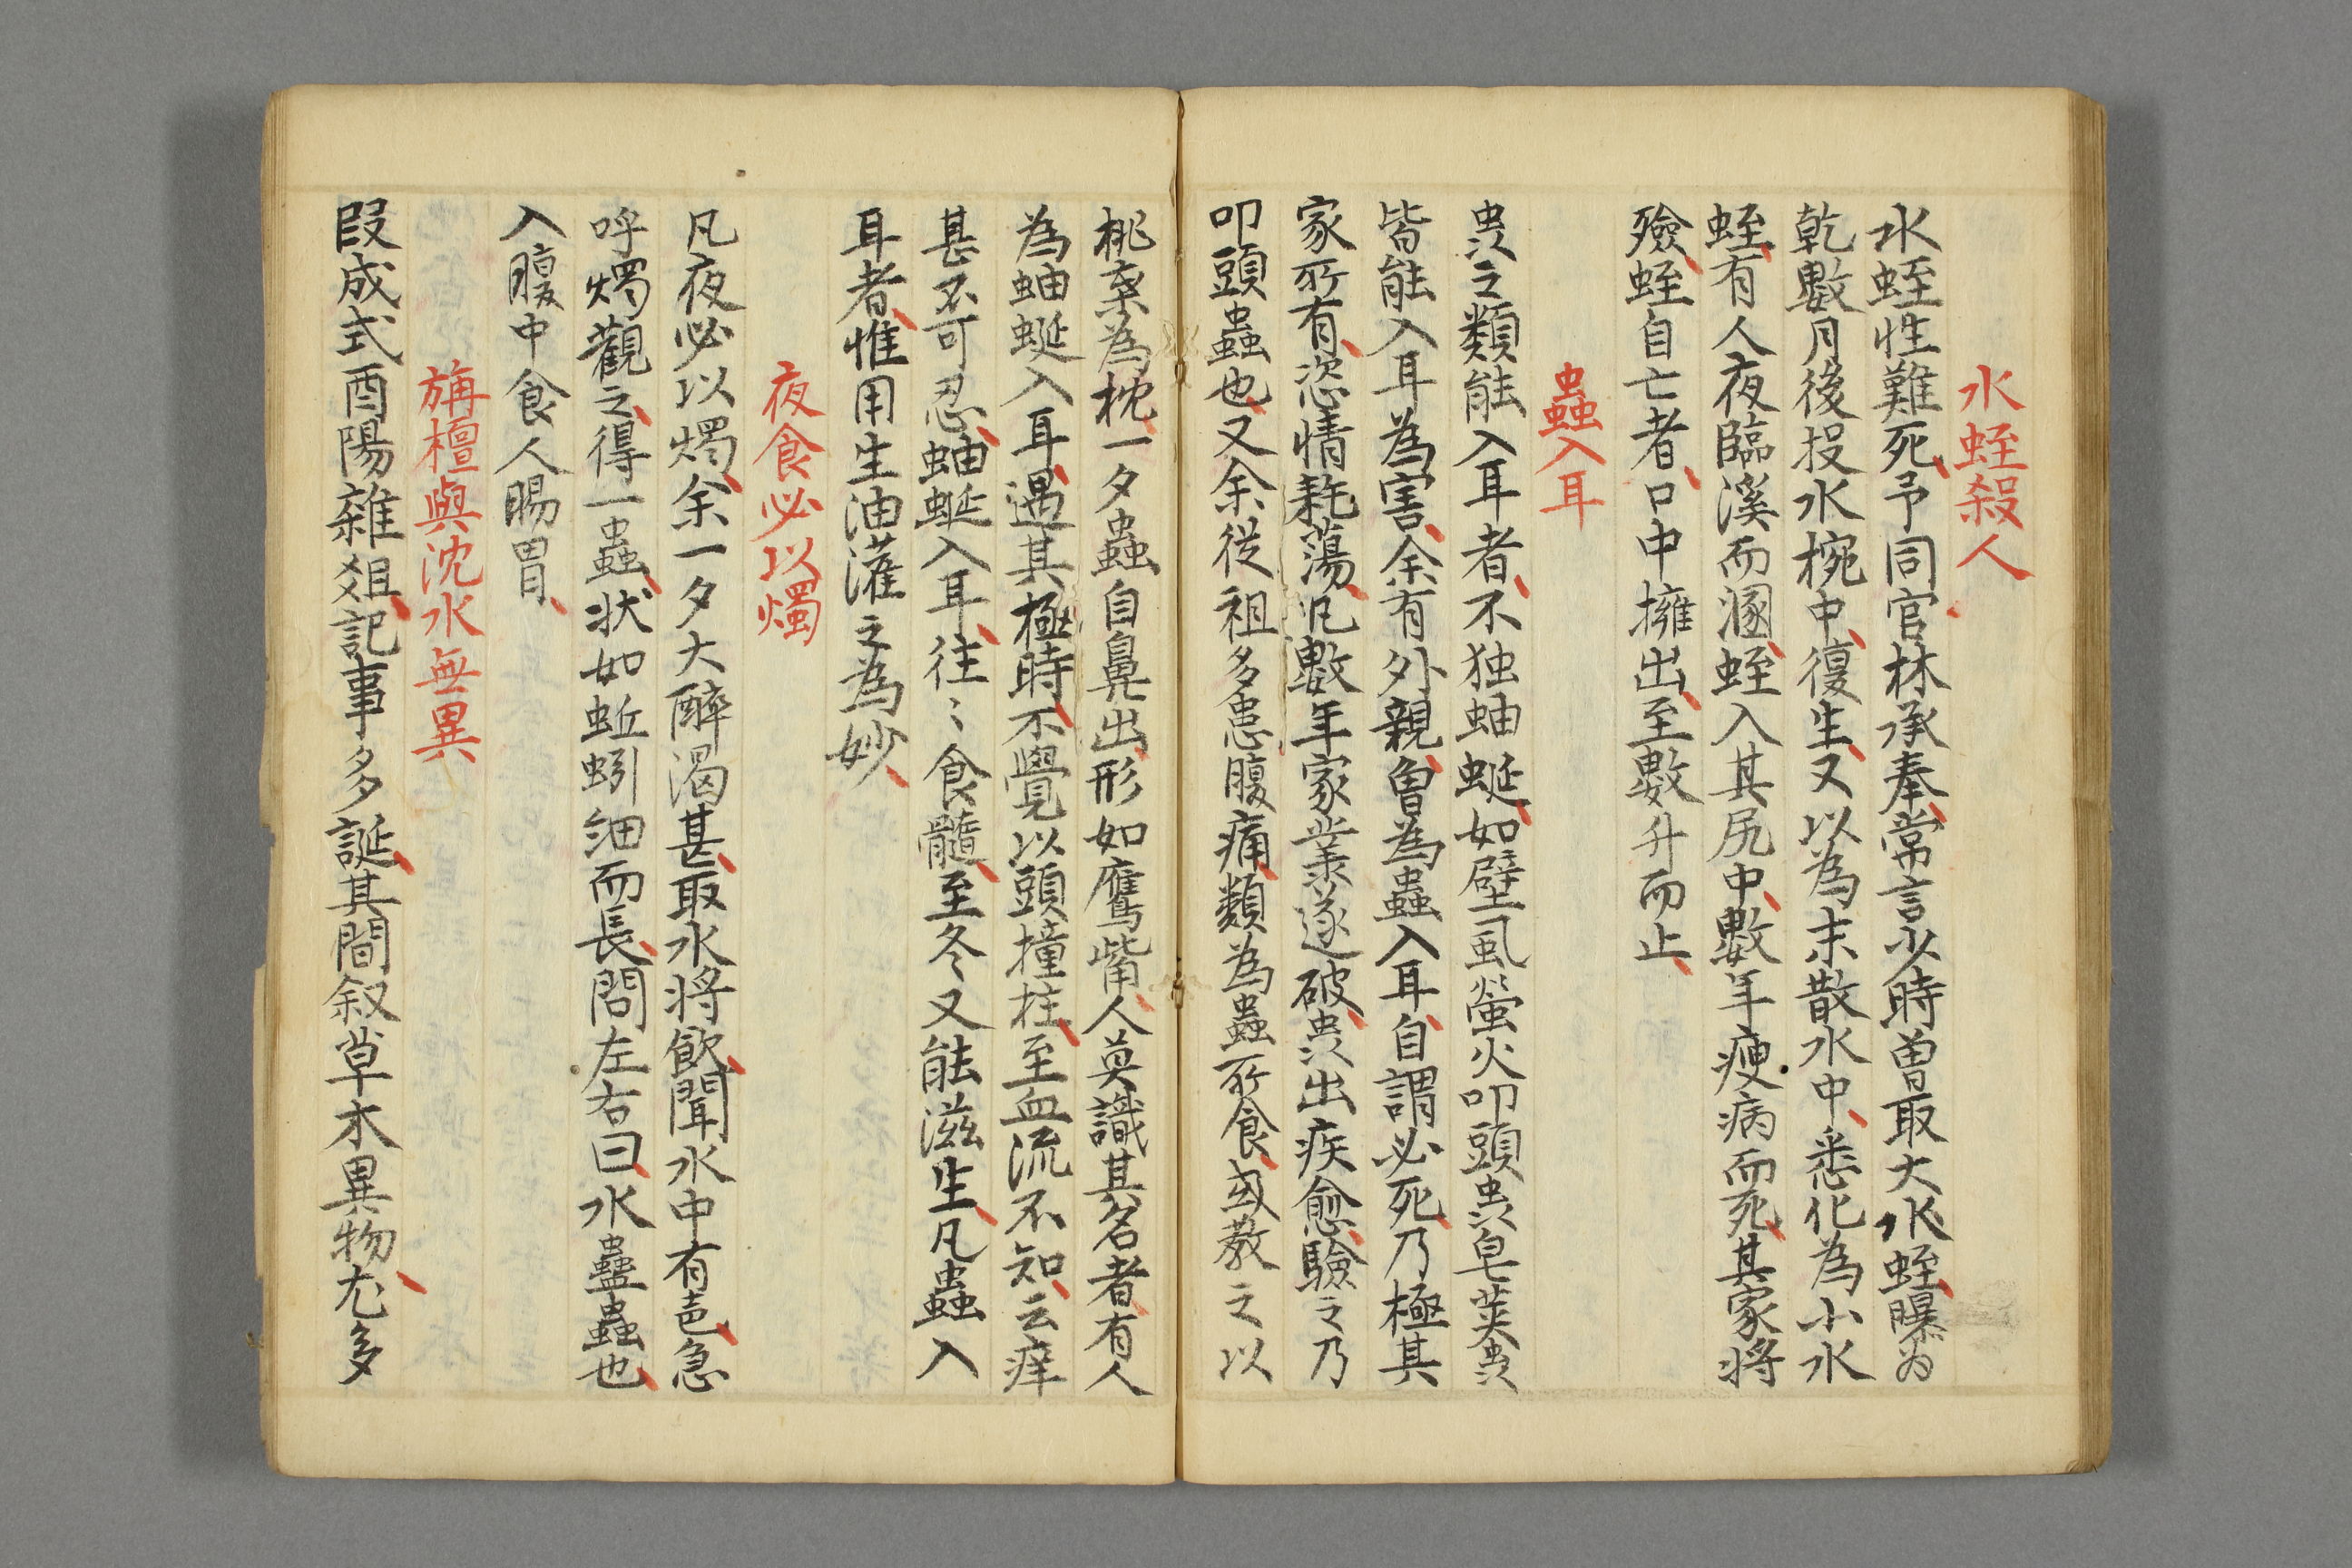 水蛭殺人
水蛭性難死予同官林承奉常言少時曽取大水蛭曝为
乾數月後投水椀中復生又以為末散水中悉化為小水
蛭有人夜臨溪而溷蛭入其尻中數年瘦病而死其家将
殮蛭自亡者口中擁出至數升而止
蟲入耳
虫之類能入耳者不独蚰蜒如壁虱螢火叩頭虫皂莢虫
皆能入耳為害余有外親曽為蟲入耳自謂必死乃極其
家所有恣情耗蕩凡數年家業遂破虫出疾愈驗之乃
叩頭蟲也又余從祖多患腹痛類為蟲所食或教之以
桃葉為枕一夕蟲自鼻出形如鷹觜人莫識其名者有人
為蚰蜒入耳遇其極時不覺以頭撞柱至血流不知云痒
甚不可忍蚰蜒入耳往〻食髓至冬又能滋生凡蟲入
耳者惟用生油灌之為妙
夜食必以燭
凡夜必以燭余一夕大醉渴甚取水将飲聞水中有声急
呼燭觀之得一蟲状如蚯蚓細而長問左右曰水蠱蟲也
入腹中食人腸胃
旃檀與沈水無異
段成式酉陽雜俎記事多誕其間叙草木異物尤多